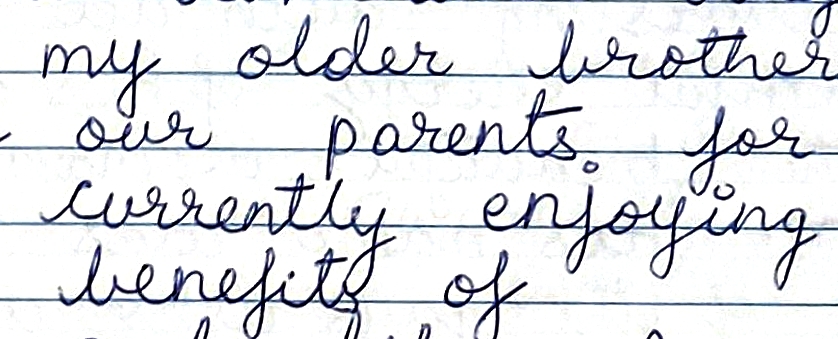 my older brother
our parents. for
currently enjoying
benefits of